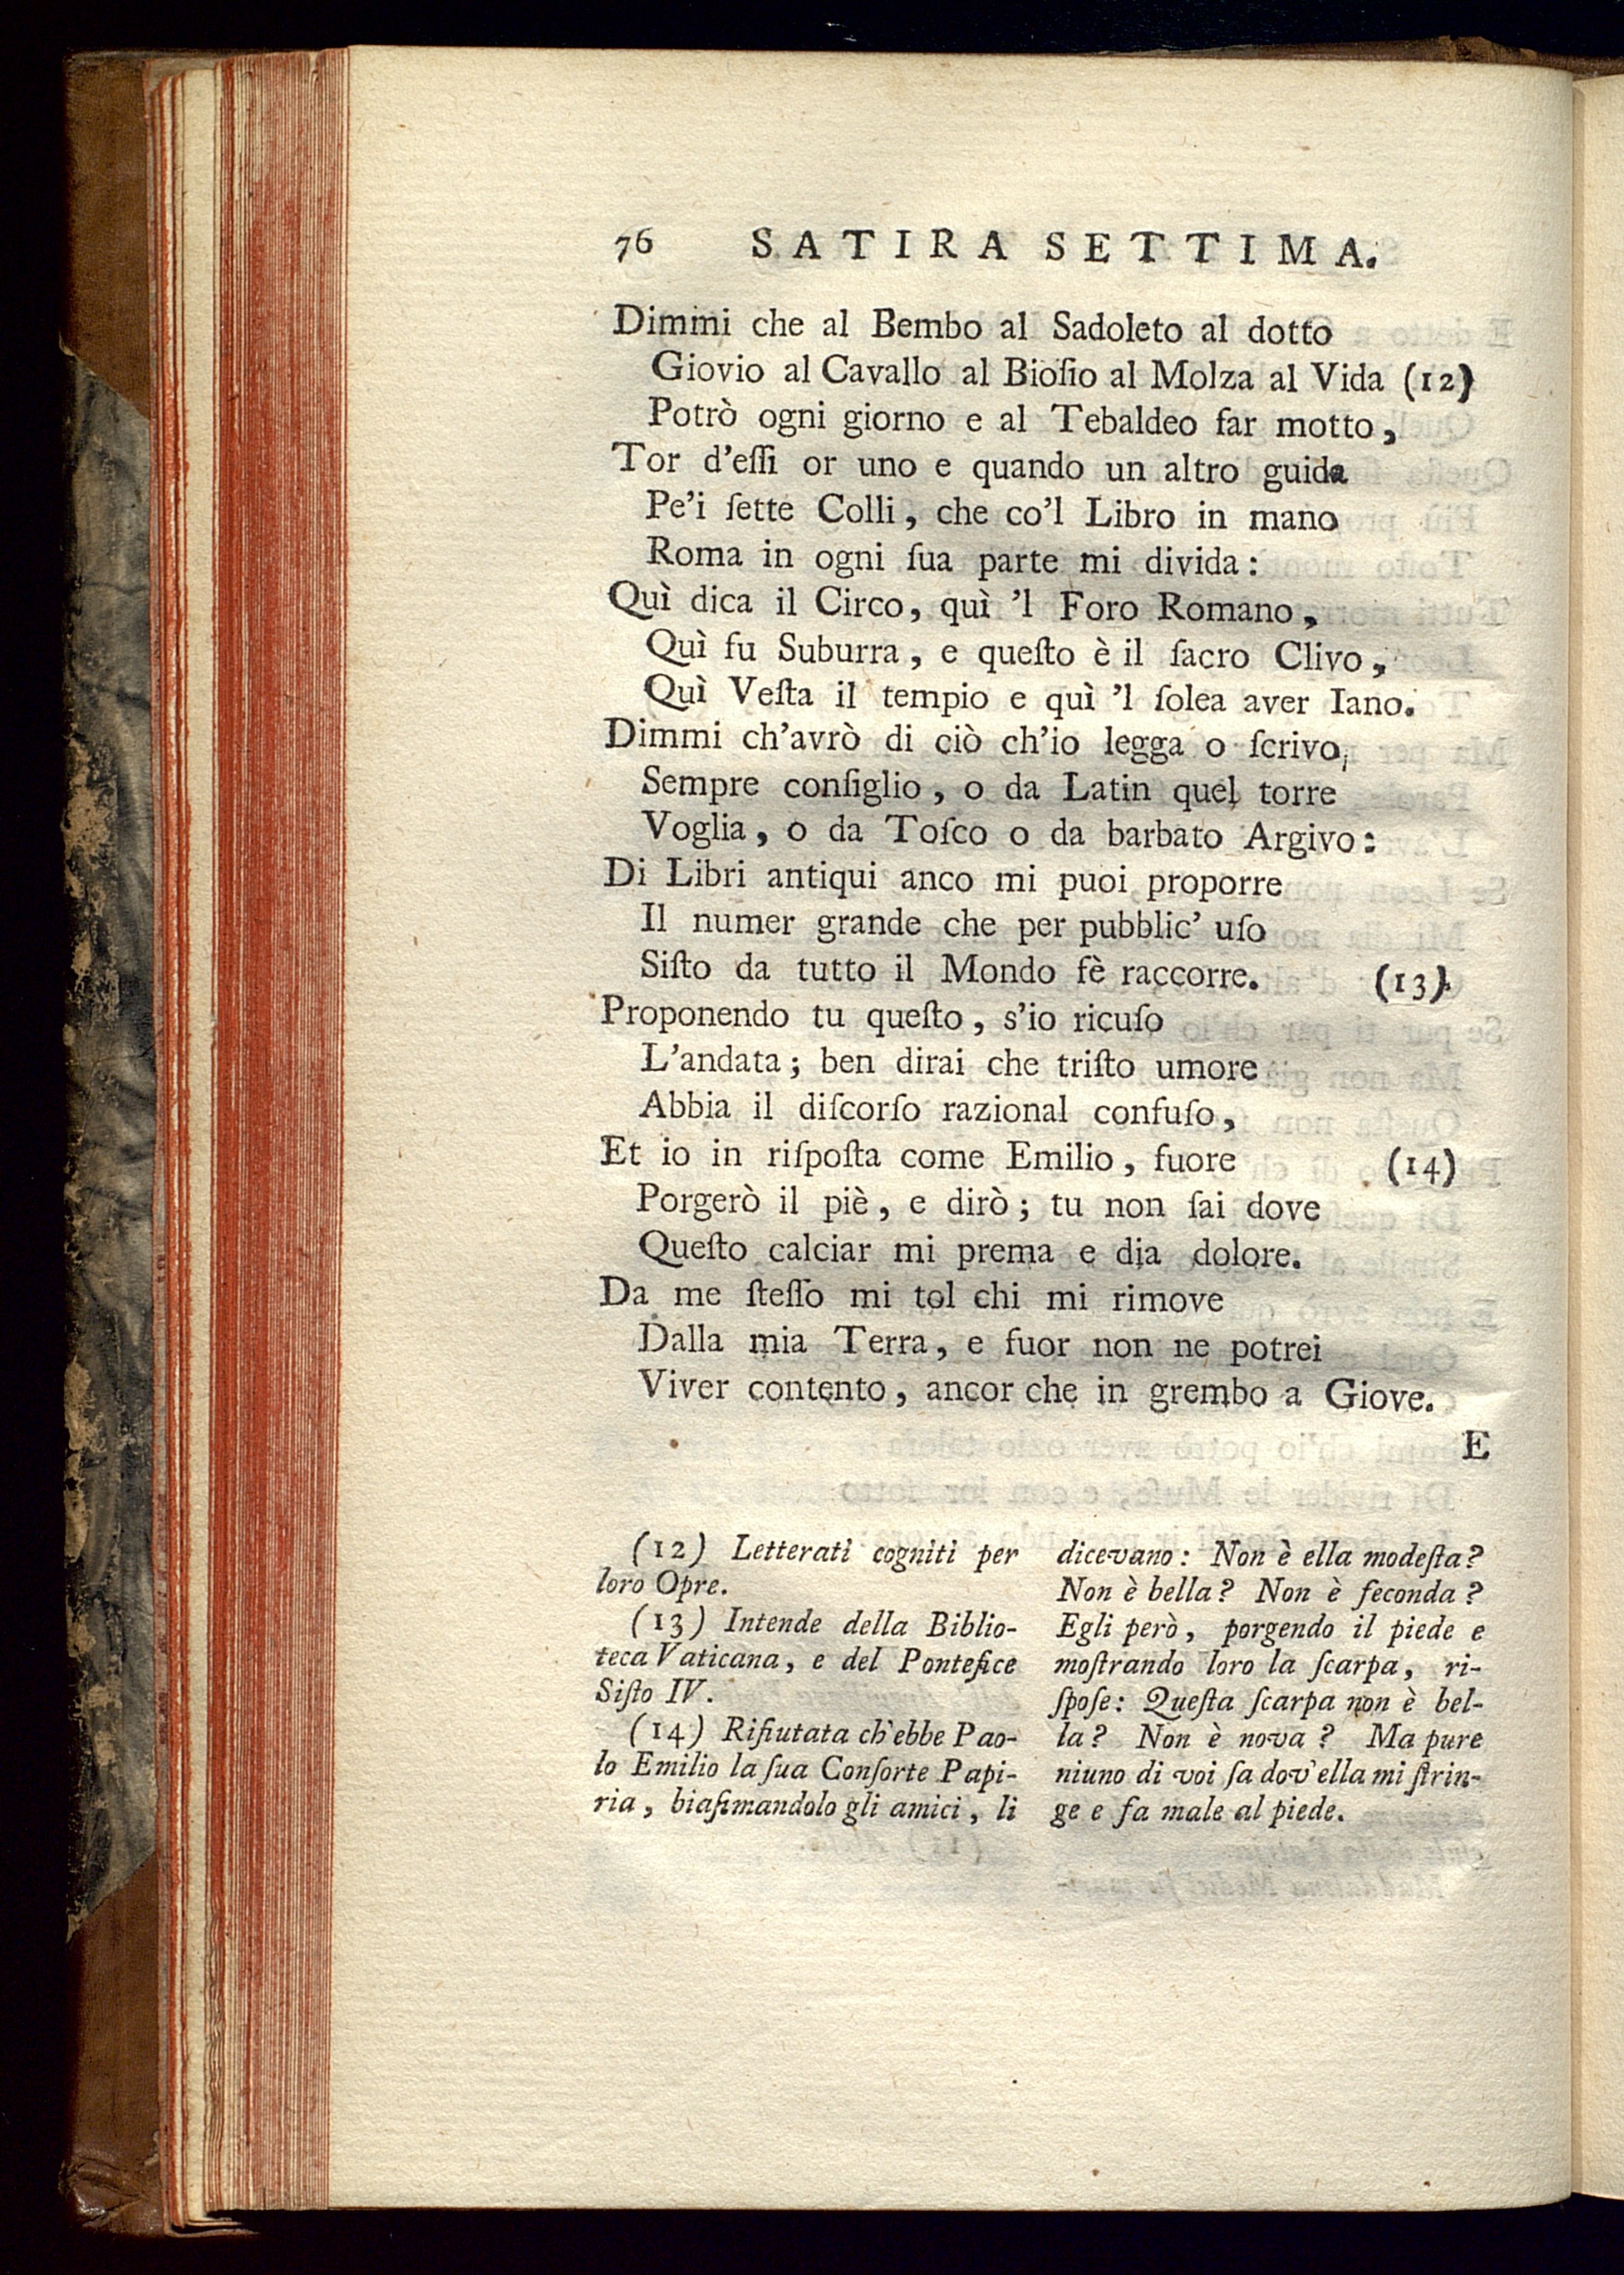 76 SATIRA SETTIMA.
Dimmi che al Bembo al Sadoleto al dotto
Giovio al Cavallo al Bioſio al Molza al Vida (12)
Potrò ogni giorno e al Tebaldeo far motto,
Tor d'eſſi or uno e quando un altro guida
Pe'i ſette Colli, che co'l Libro in mano
Roma in ogni ſua parte mi divida:
Quì dica il Circo, quì 'l Foro Romano,
Quì fu Suburra, e queſto è il ſacro Clivo,
Quì Veſta il tempio e quì 'l ſolea aver Iano.
Dimmi ch'avrò di ciò ch'io legga o ſcrivo,
Sempre conſiglio, o da Latin quel torre
Voglia, o da Toſco o da barbato Argivo:
Di Libri antiqui anco mi puoi proporre
Il numer grande che per pubblic' uſo
Siſto da tutto il Mondo fè raccorre. (13)
Proponendo tu queſto, s'io ricuſo
L'andata; ben dirai che triſto umore
Abbia il diſcorſo razional confuſo,
Et io in riſpoſta come Emilio, fuore (14)
Porgerò il piè, e dirò; tu non ſai dove
Queſto calciar mi prema e dia dolore.
Da me ſteſſo mi tol chi mi rimove
Dalla mia Terra, e fuor non ne potrei
Viver contento, ancor che in grembo a Giove.
E
(12) Letterati cogniti per
loro Opre.
(13) Intende della Biblio-
teca Vaticana, e del Pontefice
Siſto IV.
(14) Rifiutata ch'ebbe Pao-
lo Emilio la ſua Conſorte Papi-
ria, biaſimandolo gli amici, li
dicevano: Non è ella modeſta?
Non è bella? Non è feconda?
Egli però, porgendo il piede e
moſtrando loro la ſcarpa, ri-
ſpoſe: Queſta ſcarpa non è bel-
la? Non è nova? Ma pure
niuno di voi ſa dov'ella mi ſtrin-
ge e fa male al piede.